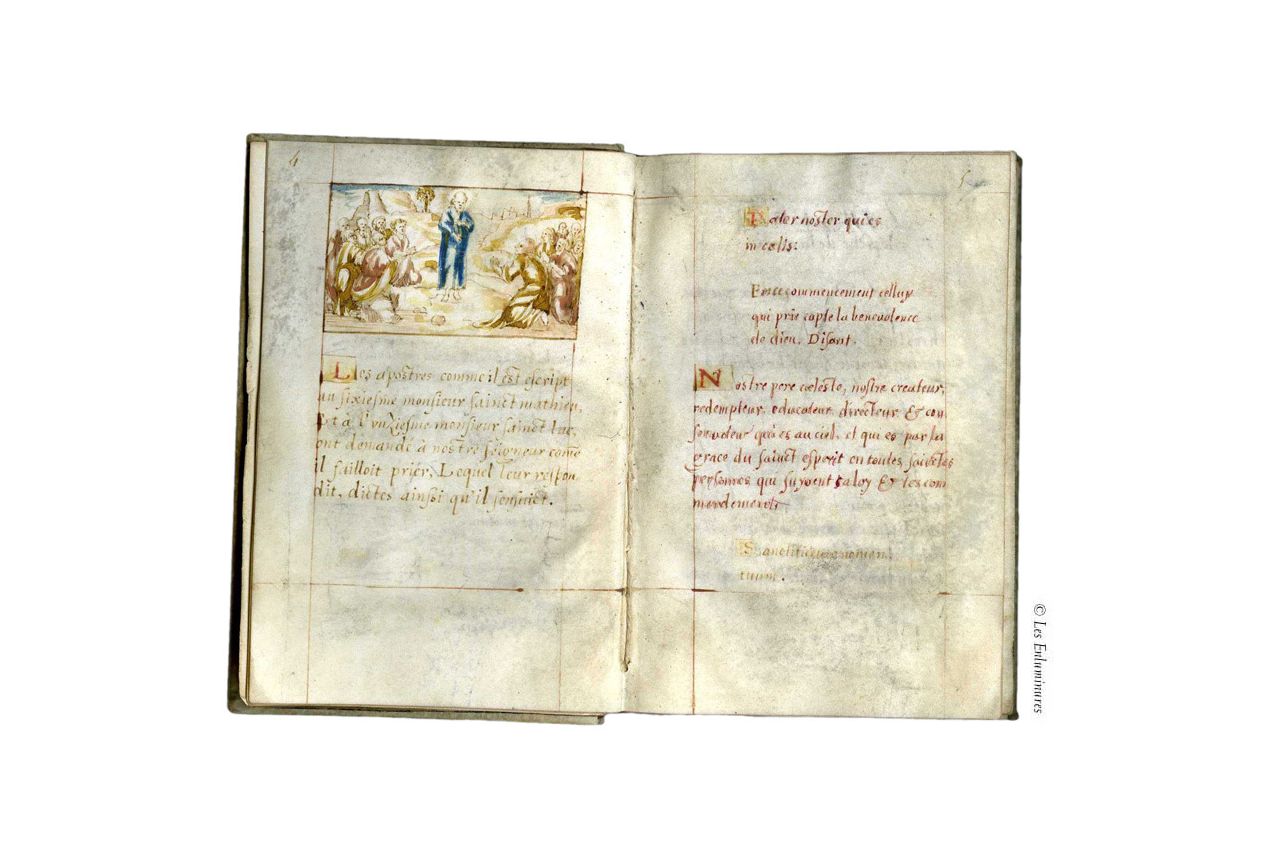 4
Les apostres comme il est escript
au sixiesme monsieur sainct mathieu,
Et à l'unziesme monsieur sainct luc,
ont demandé à nostre seigneur comē
il failloit prier, Lequel leur respon
dit, dictes ainssi qu'il sensuict.
5
Pater noster qui es
in cœlis:
commencement celluy
qui prie capte la benevolence
de dieu. Disant.
Nostre pere celeste, nostre createur,
redempteur, educateur, directeur, & con
servateur qui es au ciel, et qui es par la
grace du sainct esperit en toutes sainctes
personnes qui suyvent ta loy & tes com
mandements
Sanctificetur nomen
tuum.
© Les Enluminures